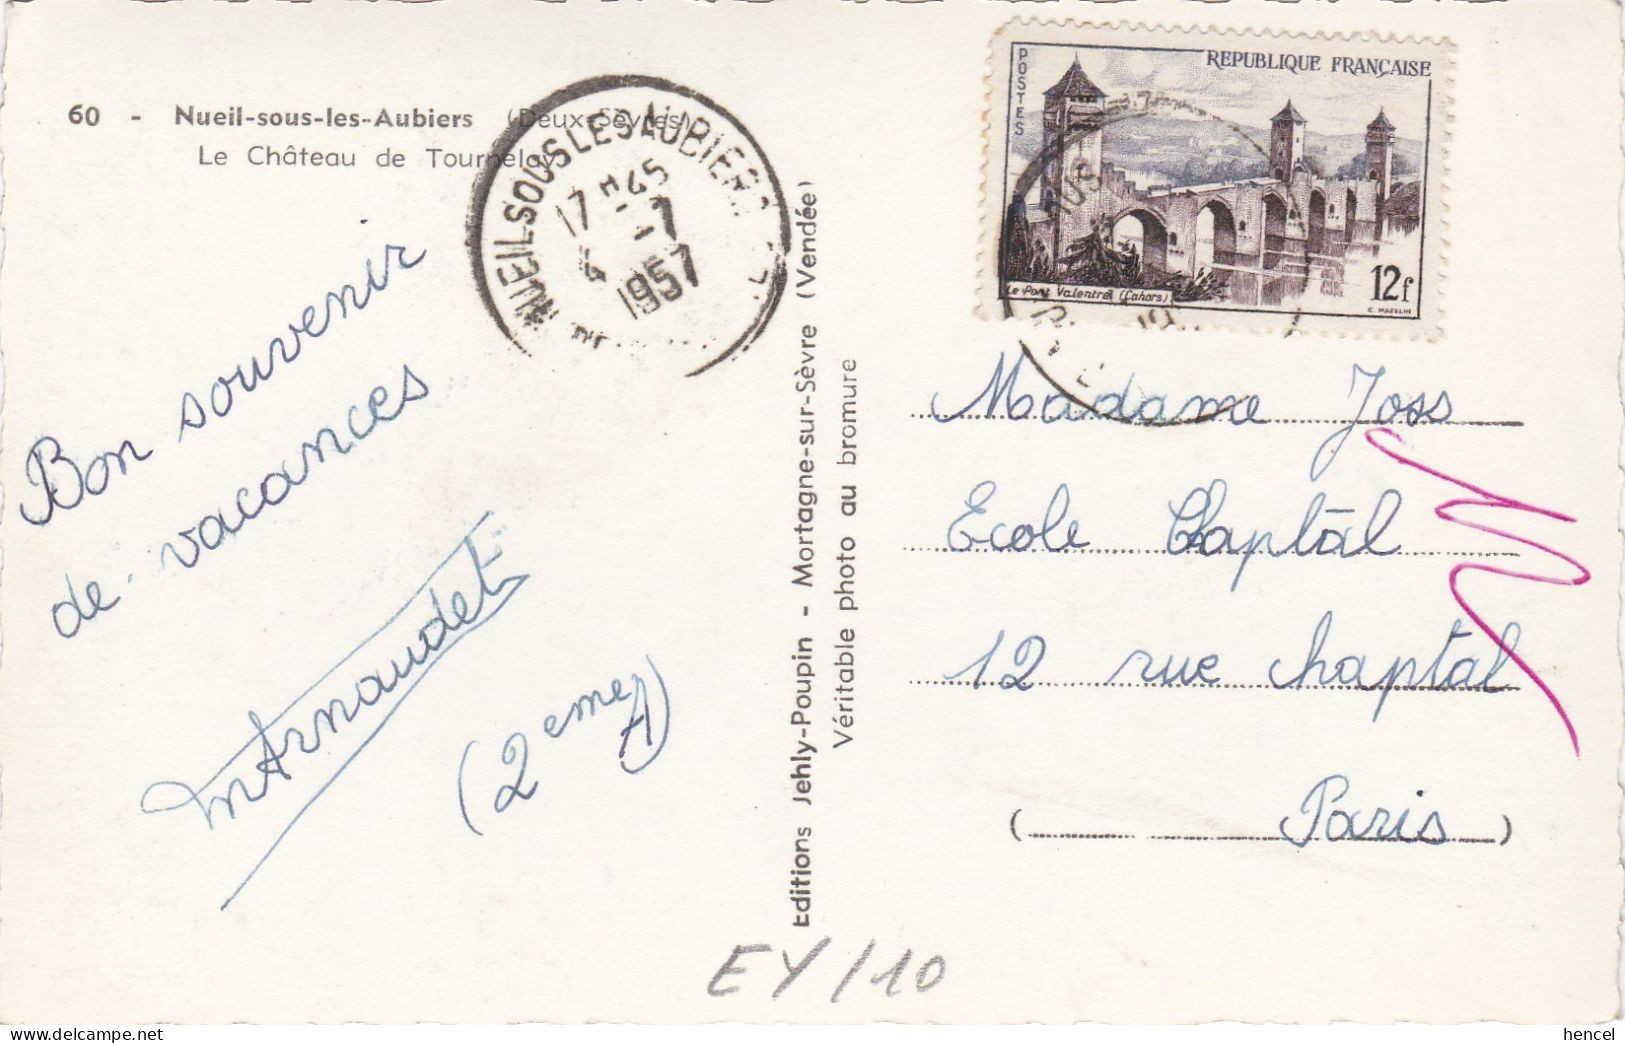 60 - Nueil-sous-les-Aubiers (Deux-Sèvres)
Le Château de Tournelay
NUEIL-SOUS LES AUBIERS
17 H 45
4 - 7
1957
Bon souvenir
de vacances
Arnaudet
(2eme A)
Editions Jehly-Poupin - Mortagne-sur-Sèvre (Vendée)
Véritable photo au bromure
POSTES
REPUBLIQUE FRANÇAISE
Le Pont Valentré (Cahors)
12f
C. MAZELIN
Madame Joss
Ecole Chaptal
12 rue Chaptal
(Paris)
EY/10
delcampe.net
hencel